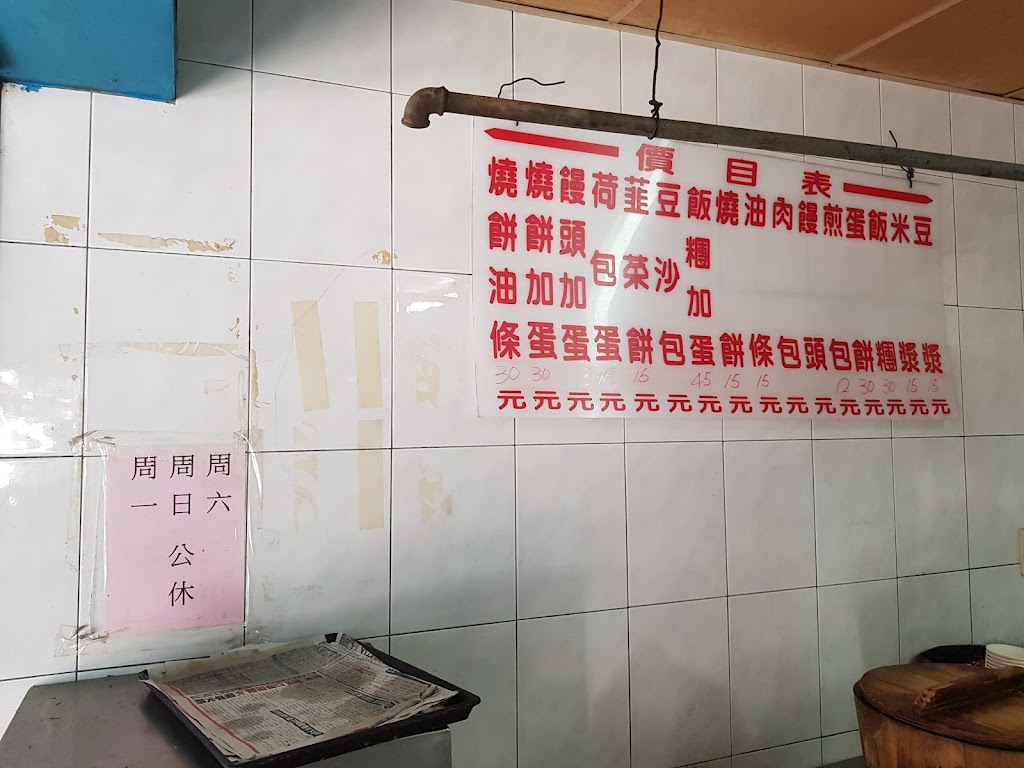 價目表
豆漿 15元
米漿 15元
飯糰 30元
蛋餅 30元
煎包 12元
饅頭 元
肉包 元
油條 15元
燒餅 15元
飯糰加蛋 45元
豆沙包 元
韮菜餅 15元
荷包蛋 元
饅頭加蛋 元
燒餅加蛋 30元
燒餅油條 30元
周六
周日 公休
周一